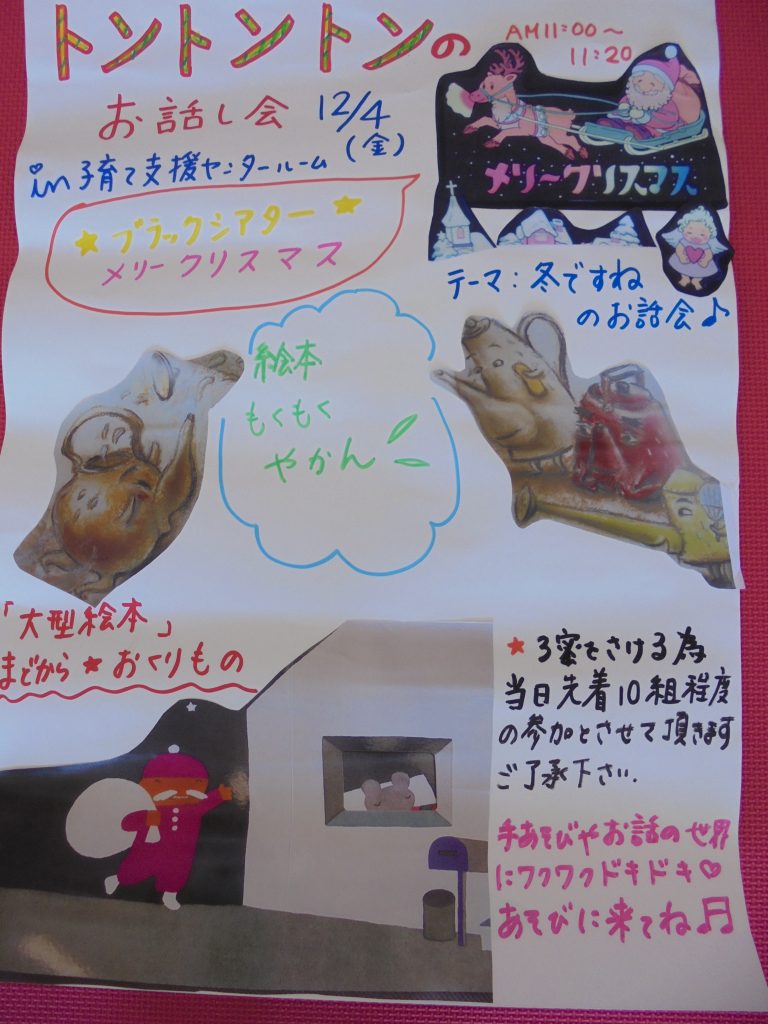 トントントンの
AM11:00～
11:20
お話し会 12/4
(金)
in 子育て支援センタールーム
メリークリスマス
★ブラックシアター★
メリークリスマス
テーマ:冬ですね
のお話会♪
絵本
もくもく
やかん
「大型絵本」
まどから★おくりもの
★3密をさける為
当日先着10組程度
の参加とさせて頂きます
ご了承下さい.
手あそびやお話の世界
にワクワクドキドキ♡
あそびに来てね♫